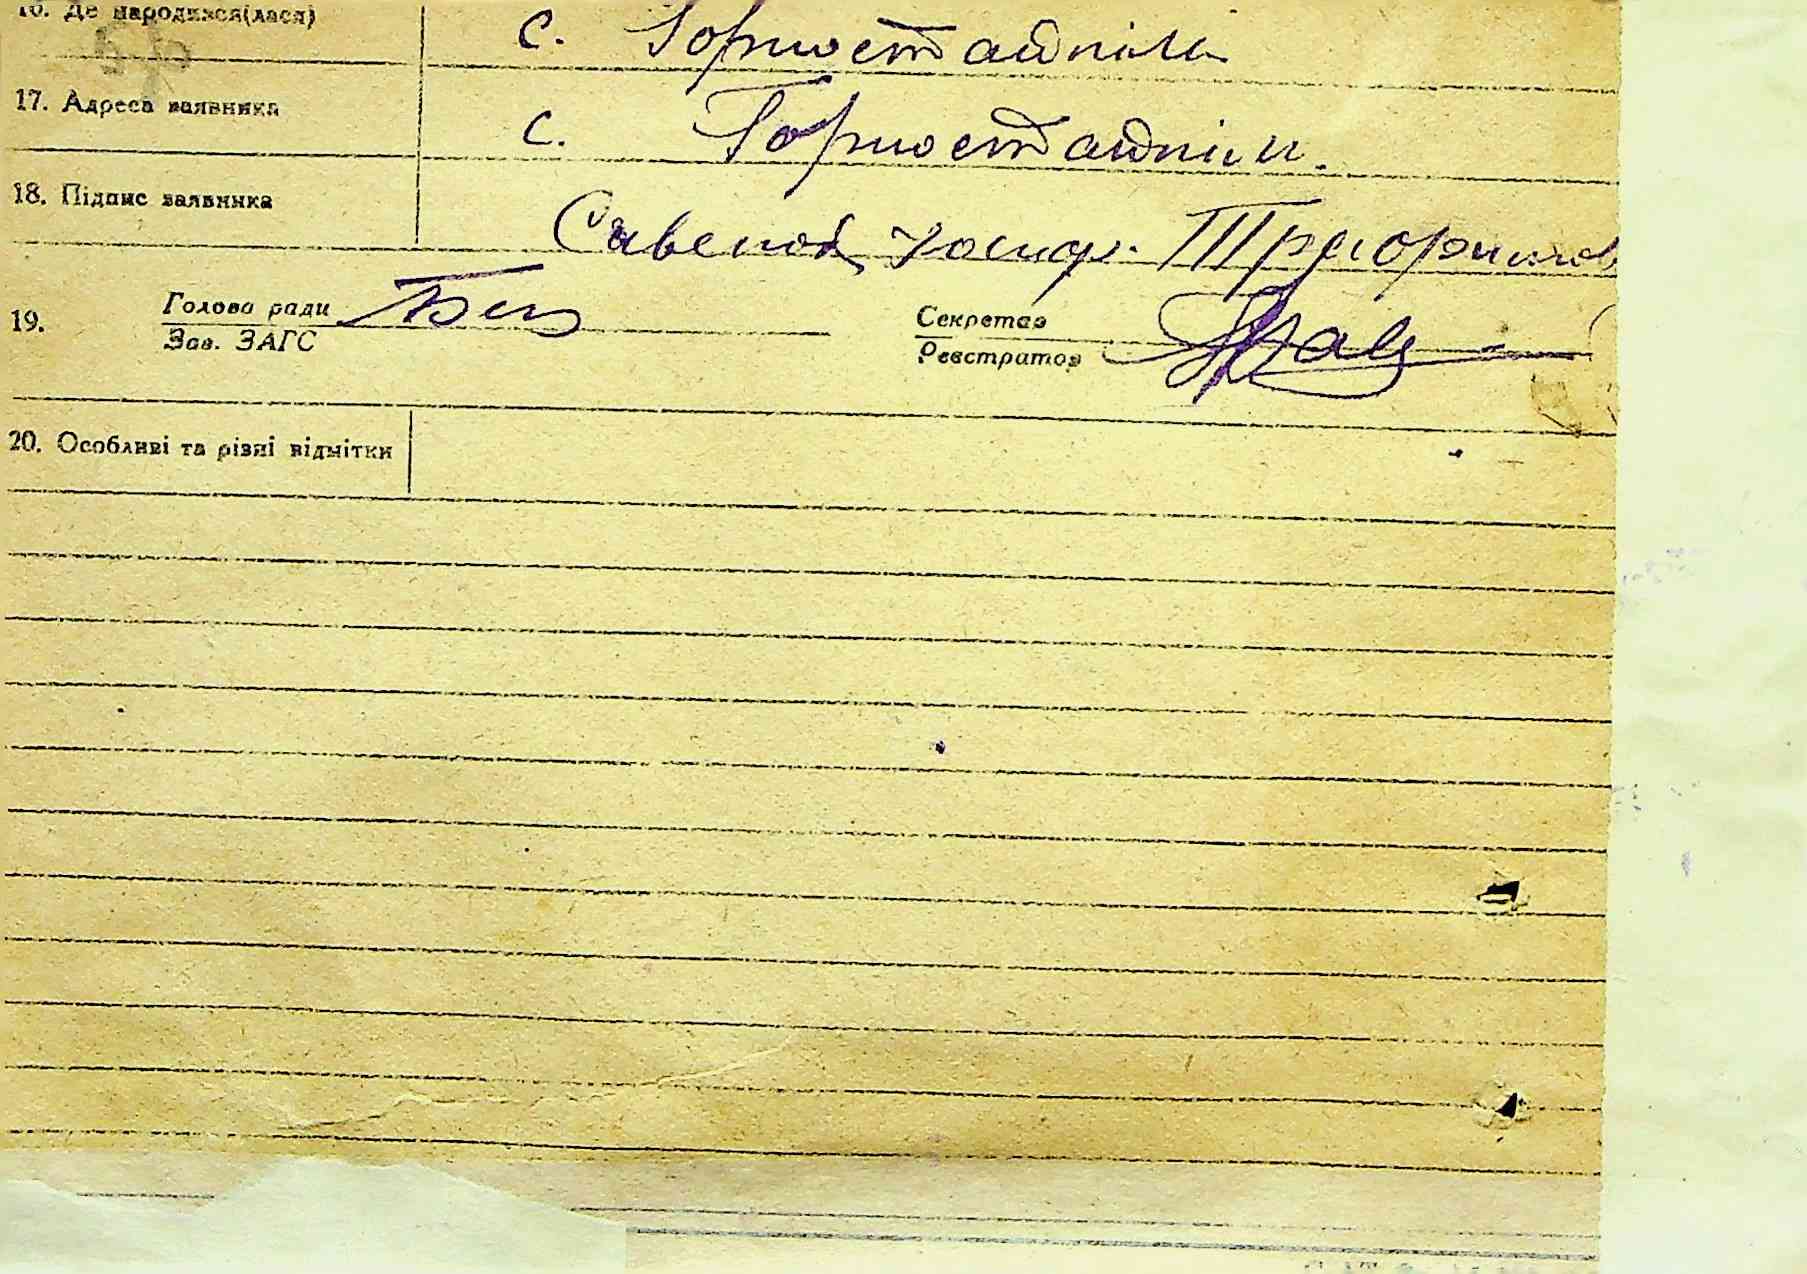 16. Де народився(лася) с. Горностайпіль
17. Адреса заявника с. Горностайпіль.
18. Підпис заявника Савенок Иосиф.
19. Голова ради Секретар
Зав. ЗАГС Реєстратор
20. Особливі та різні відмітки